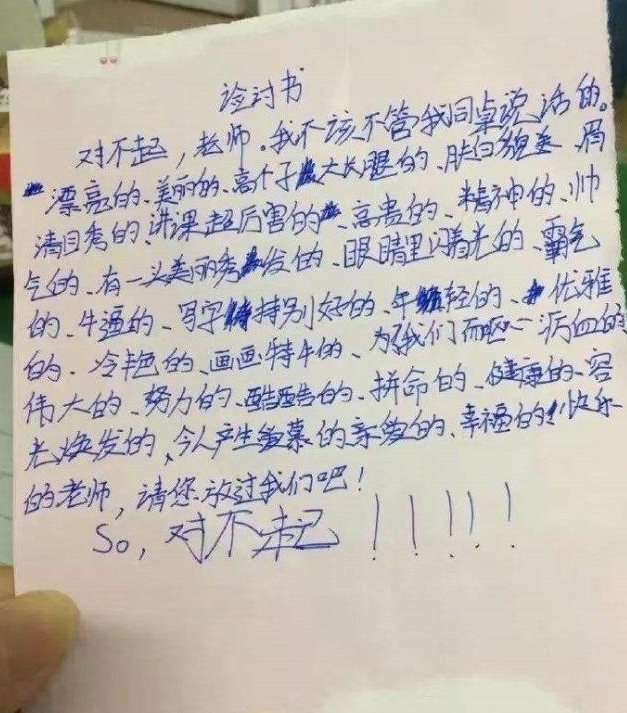 检讨书
对不起，老师。我不该不管我同桌说话的。
漂亮的、美丽的、高个子大长腿的、肤白貌美、眉
清目秀的、讲课超厉害的、高贵的、精神的、帅
气的、有一头美丽秀发的、眼睛里闪着光的、霸气
的、牛逼的、写字特别好的、年轻的、优雅
的、冷艳的、画画特牛的、为了我们而呕心沥血的
伟大的、努力的、酷酷的、拼命的、健康的、容
光焕发的、令人产生羡慕的亲爱的、幸福的快乐
的老师，请您放过我们吧！
So，对不起！！！！！